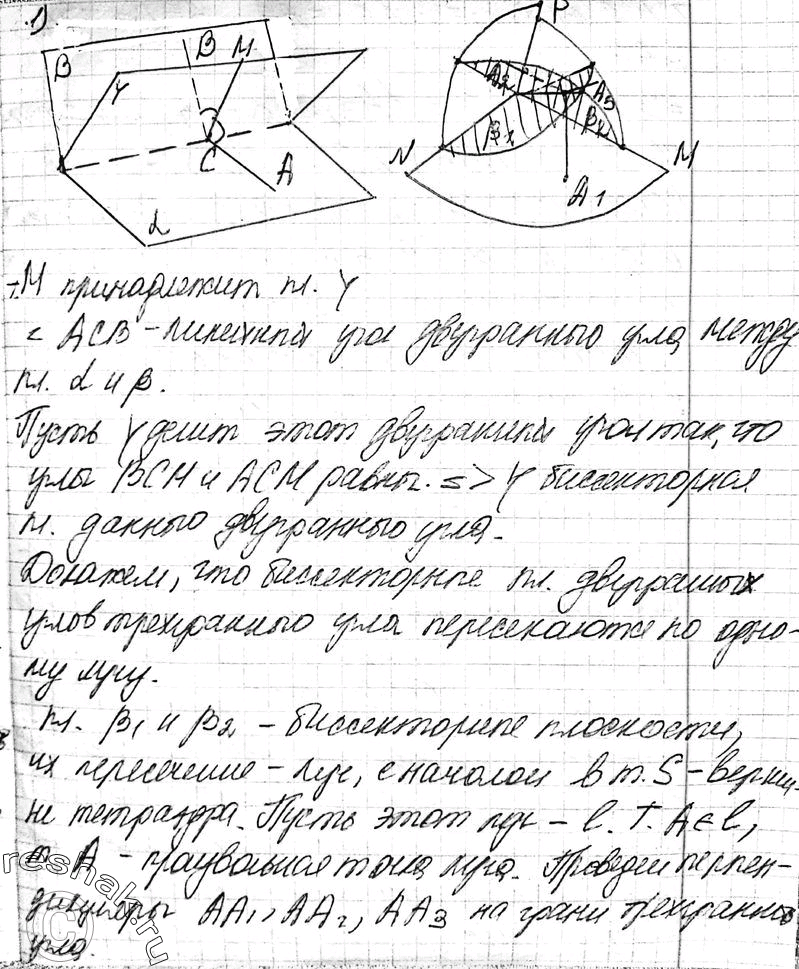 1)
B B M P
Y
C A
α
A2 A3
β1 β2
N M
A1
т. М принадлежит пл. γ
∠ ACB - линейный угол двугранного угла между
пл. α и β.
Пусть γ делит этот двугранный угол так, что
углы BCM и ACM равны. => γ биссекторная
пл. данного двугранного угла.
Докажем, что биссекторные пл. двугранных
углов трехгранного угла пересекаются по одно-
му лучу.
пл. β1 и β2 - биссекторные плоскости,
их пересечение - луч, с началом в т. S - верши-
не тетраэдра. Пусть этот луч - l. Т. A ∈ l,
т. A - произвольная точка луча. Проведем перпен-
дикуляры AA1, AA2, AA3 на грани трехгранного
угла.
reshak.ru